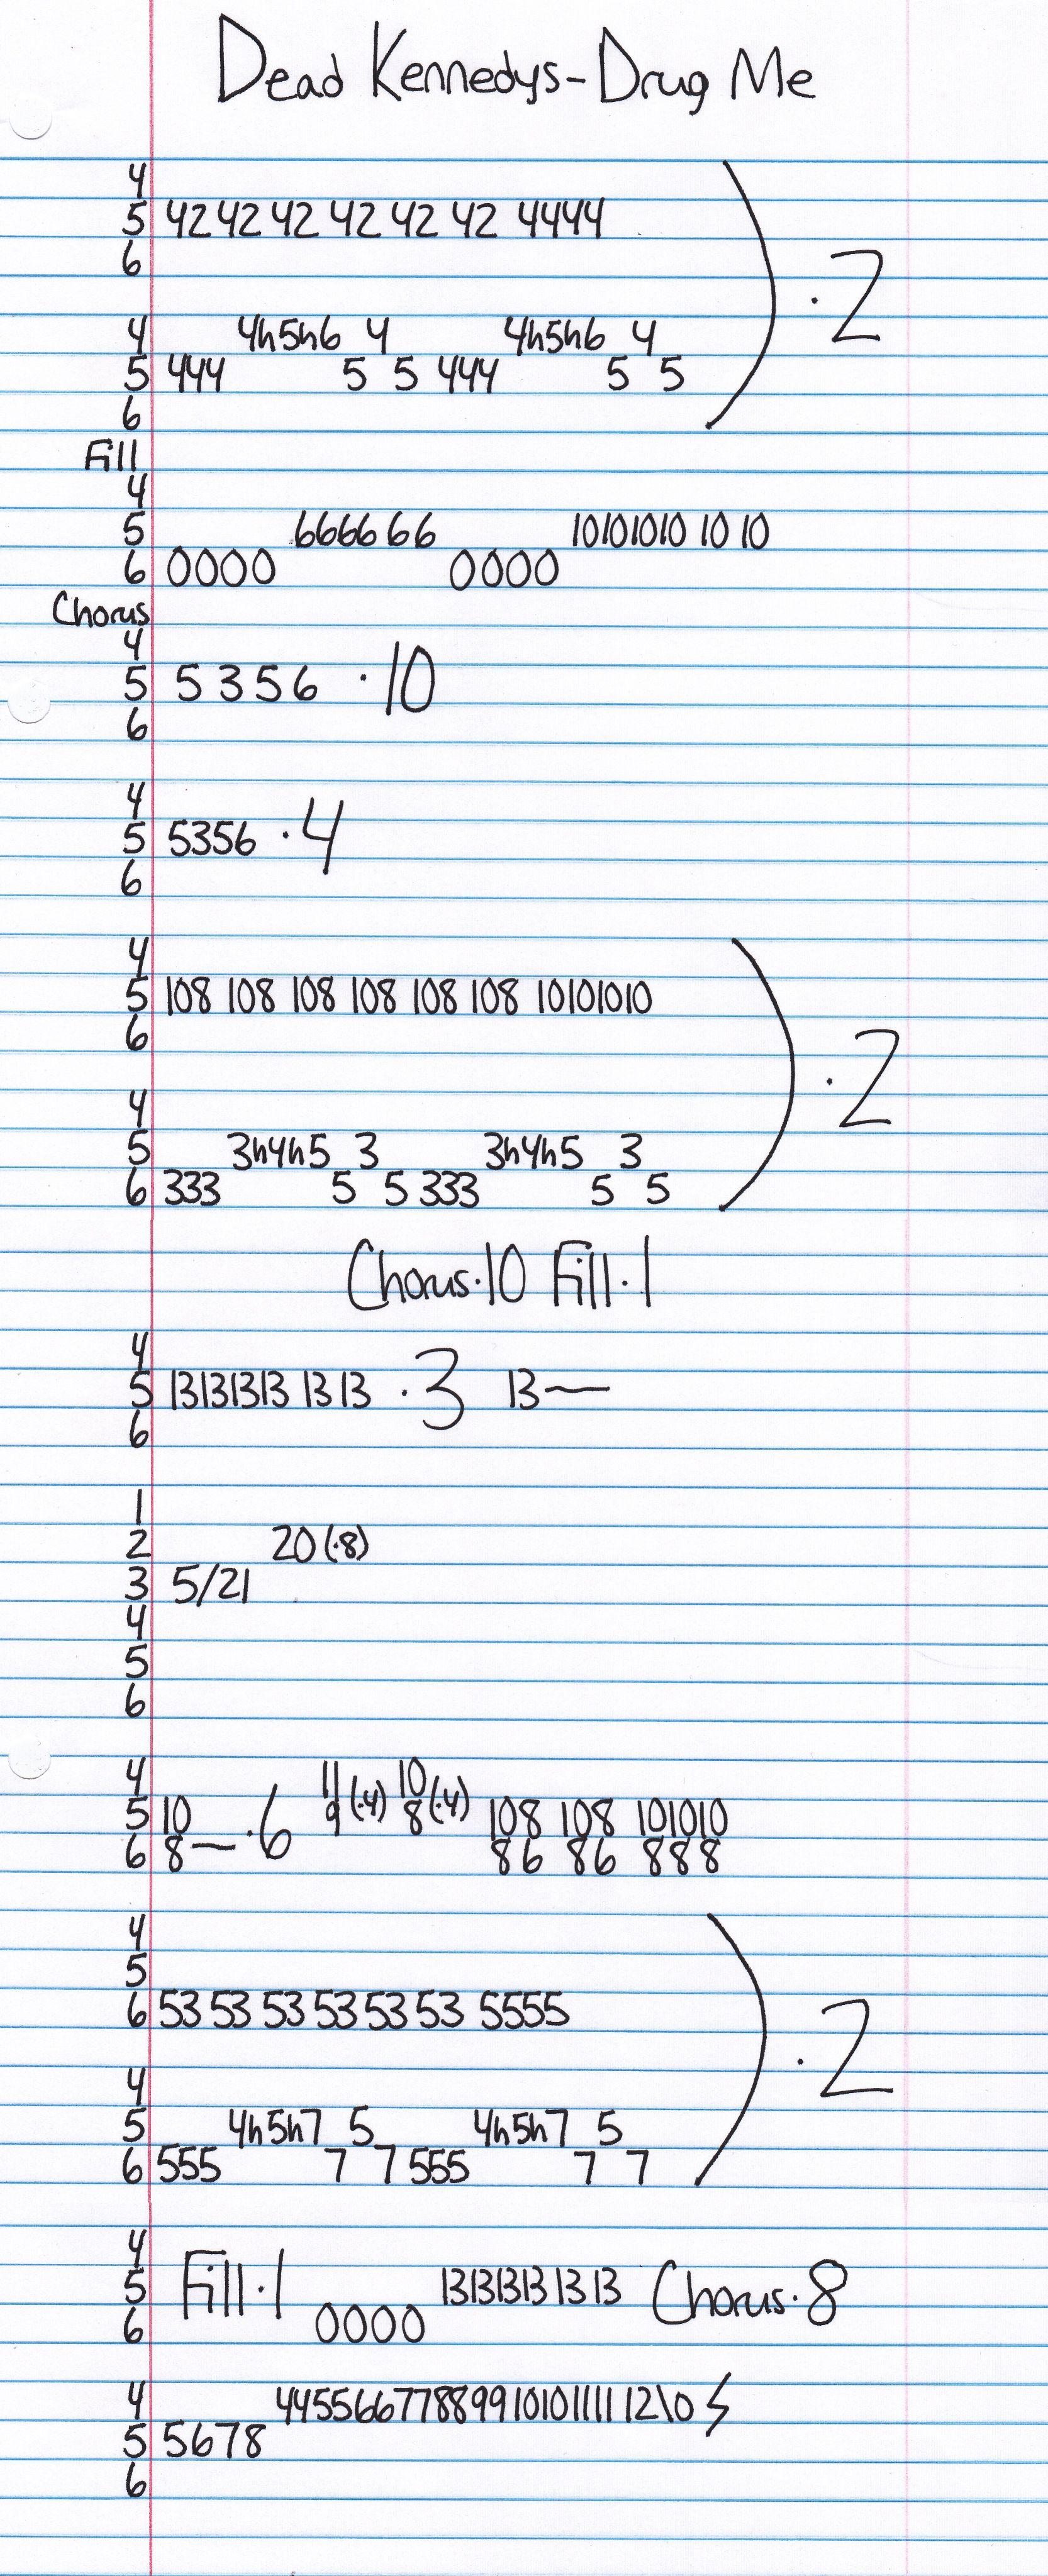 Dead Kennedys-Drug Me
4
5 42 42 42 42 42 42 4444
6
4 4h5h6 4 4h5h6 4
5 444 5 5 444 5 5
6
) ·2
Fill
4
5 666666 10101010 10 10
6 0000 0000
Chorus
4
5 5 3 5 6 ·10
6
4
5 5356 ·4
6
4
5 108 108 108 108 108 108 10101010
6
4
5 3h4h5 3 3h4h5 3
6 333 5 5 333 5 5
) ·2
Chorus·10 Fill·1
4
5 13131313 13 13 ·3 13—
6
1
2 20(·8)
3 5/21
4
5
6
4 11 10
5 10 9 (·4) 8 (·4) 108 108 101010
6 8— ·6 86 86 888
4
5
6 53 53 53 53 53 53 5555
4
5 4h5h7 5 4h5h7 5
6 555 7 7 555 7 7
) ·2
4
5 Fill·1 13131313 13 13 Chorus·8
6 0000
4 44556677889910101111 12\0
5 5678
6